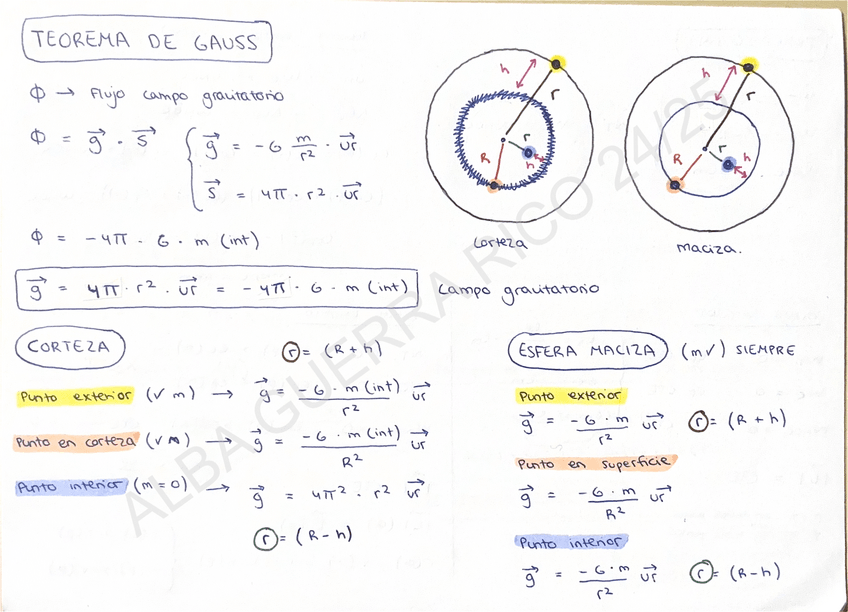 TEOREMA DE GAUSS
Φ → Flujo campo gravitatorio
Φ = g⃗ · s⃗ { g⃗ = -G m/r² · ur⃗
s⃗ = 4π · r² · ur⃗
Φ = -4π · G · m (int)
g⃗ = 4π · r² · ur⃗ = -4π · G · m (int) campo gravitatorio
h r r R h
corteza
h r r R h
maciza.
CORTEZA r = (R + h)
Punto exterior (✓ m) → g⃗ = -G · m (int)/r² ur⃗
Punto en corteza (✓ m) → g⃗ = -G · m (int)/R² ur⃗
Punto interior (m = 0) → g⃗ = 4π² · r² ur⃗
r = (R - h)
ESFERA MACIZA (m ✓) SIEMPRE
Punto exterior
g⃗ = -G · m/r² ur⃗ r = (R + h)
Punto en superficie
g⃗ = -G · m/R² ur⃗
Punto interior
g⃗ = -G · m/r² ur⃗ r = (R - h)
ALBA GUERRA RICO 24/25